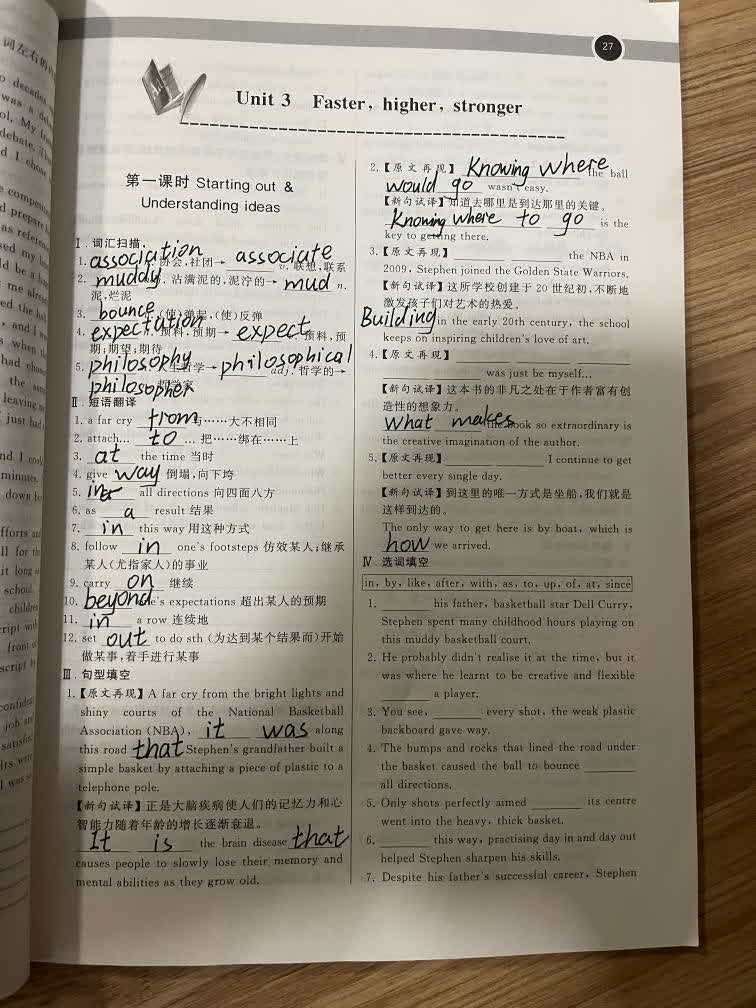 27
Unit 3 Faster, higher, stronger
第一课时 Starting out &
Understanding ideas
Ⅰ. 词汇扫描
1. association n. 协会,社团→ associate v. 联想,联系
2. muddy adj. 沾满泥的,泥泞的→ mud n.
泥,烂泥
3. bounce v. (使)弹起,(使)反弹
4. expectation n. 预料,预期→ expect v. 预料,预
期;期望;期待
5. philosophy n. 哲学→ philosophical adj. 哲学的→
philosopher 哲学家
Ⅱ. 短语翻译
1. a far cry from 与……大不相同
2. attach... to ... 把……绑在……上
3. at the time 当时
4. give way 倒塌,向下垮
5. in all directions 向四面八方
6. as a result 结果
7. in this way 用这种方式
8. follow in one's footsteps 仿效某人;继承
某人(尤指家人)的事业
9. carry on 继续
10. beyond one's expectations 超出某人的预期
11. in a row 连续地
12. set out to do sth (为达到某个结果而)开始
做某事,着手进行某事
Ⅲ. 句型填空
1.【原文再现】A far cry from the bright lights and
shiny courts of the National Basketball
Association (NBA), it was along
this road that Stephen's grandfather built a
simple basket by attaching a piece of plastic to a
telephone pole.
【新句试译】正是大脑疾病使人们的记忆力和心
智能力随着年龄的增长逐渐衰退。
It is the brain disease that
causes people to slowly lose their memory and
mental abilities as they grow old.
2.【原文再现】Knowing where the ball
would go wasn't easy.
【新句试译】知道去哪里是到达那里的关键。
Knowing where to go is the
key to getting there.
3.【原文再现】 the NBA in
2009, Stephen joined the Golden State Warriors.
【新句试译】这所学校创建于 20 世纪初,不断地
激发孩子们对艺术的热爱。
Building in the early 20th century, the school
keeps on inspiring children's love of art.
4.【原文再现】
was just be myself...
【新句试译】这本书的非凡之处在于作者富有创
造性的想象力。
What makes the book so extraordinary is
the creative imagination of the author.
5.【原文再现】 I continue to get
better every single day.
【新句试译】到这里的唯一方式是坐船,我们就是
这样到达的。
The only way to get here is by boat, which is
how we arrived.
Ⅳ. 选词填空
in, by, like, after, with, as, to, up, of, at, since
1. his father, basketball star Dell Curry,
Stephen spent many childhood hours playing on
this muddy basketball court.
2. He probably didn't realise it at the time, but it
was where he learnt to be creative and flexible
a player.
3. You see, every shot, the weak plastic
backboard gave way.
4. The bumps and rocks that lined the road under
the basket caused the ball to bounce
all directions.
5. Only shots perfectly aimed its centre
went into the heavy, thick basket.
6. this way, practising day in and day out
helped Stephen sharpen his skills.
7. Despite his father's successful career, Stephen